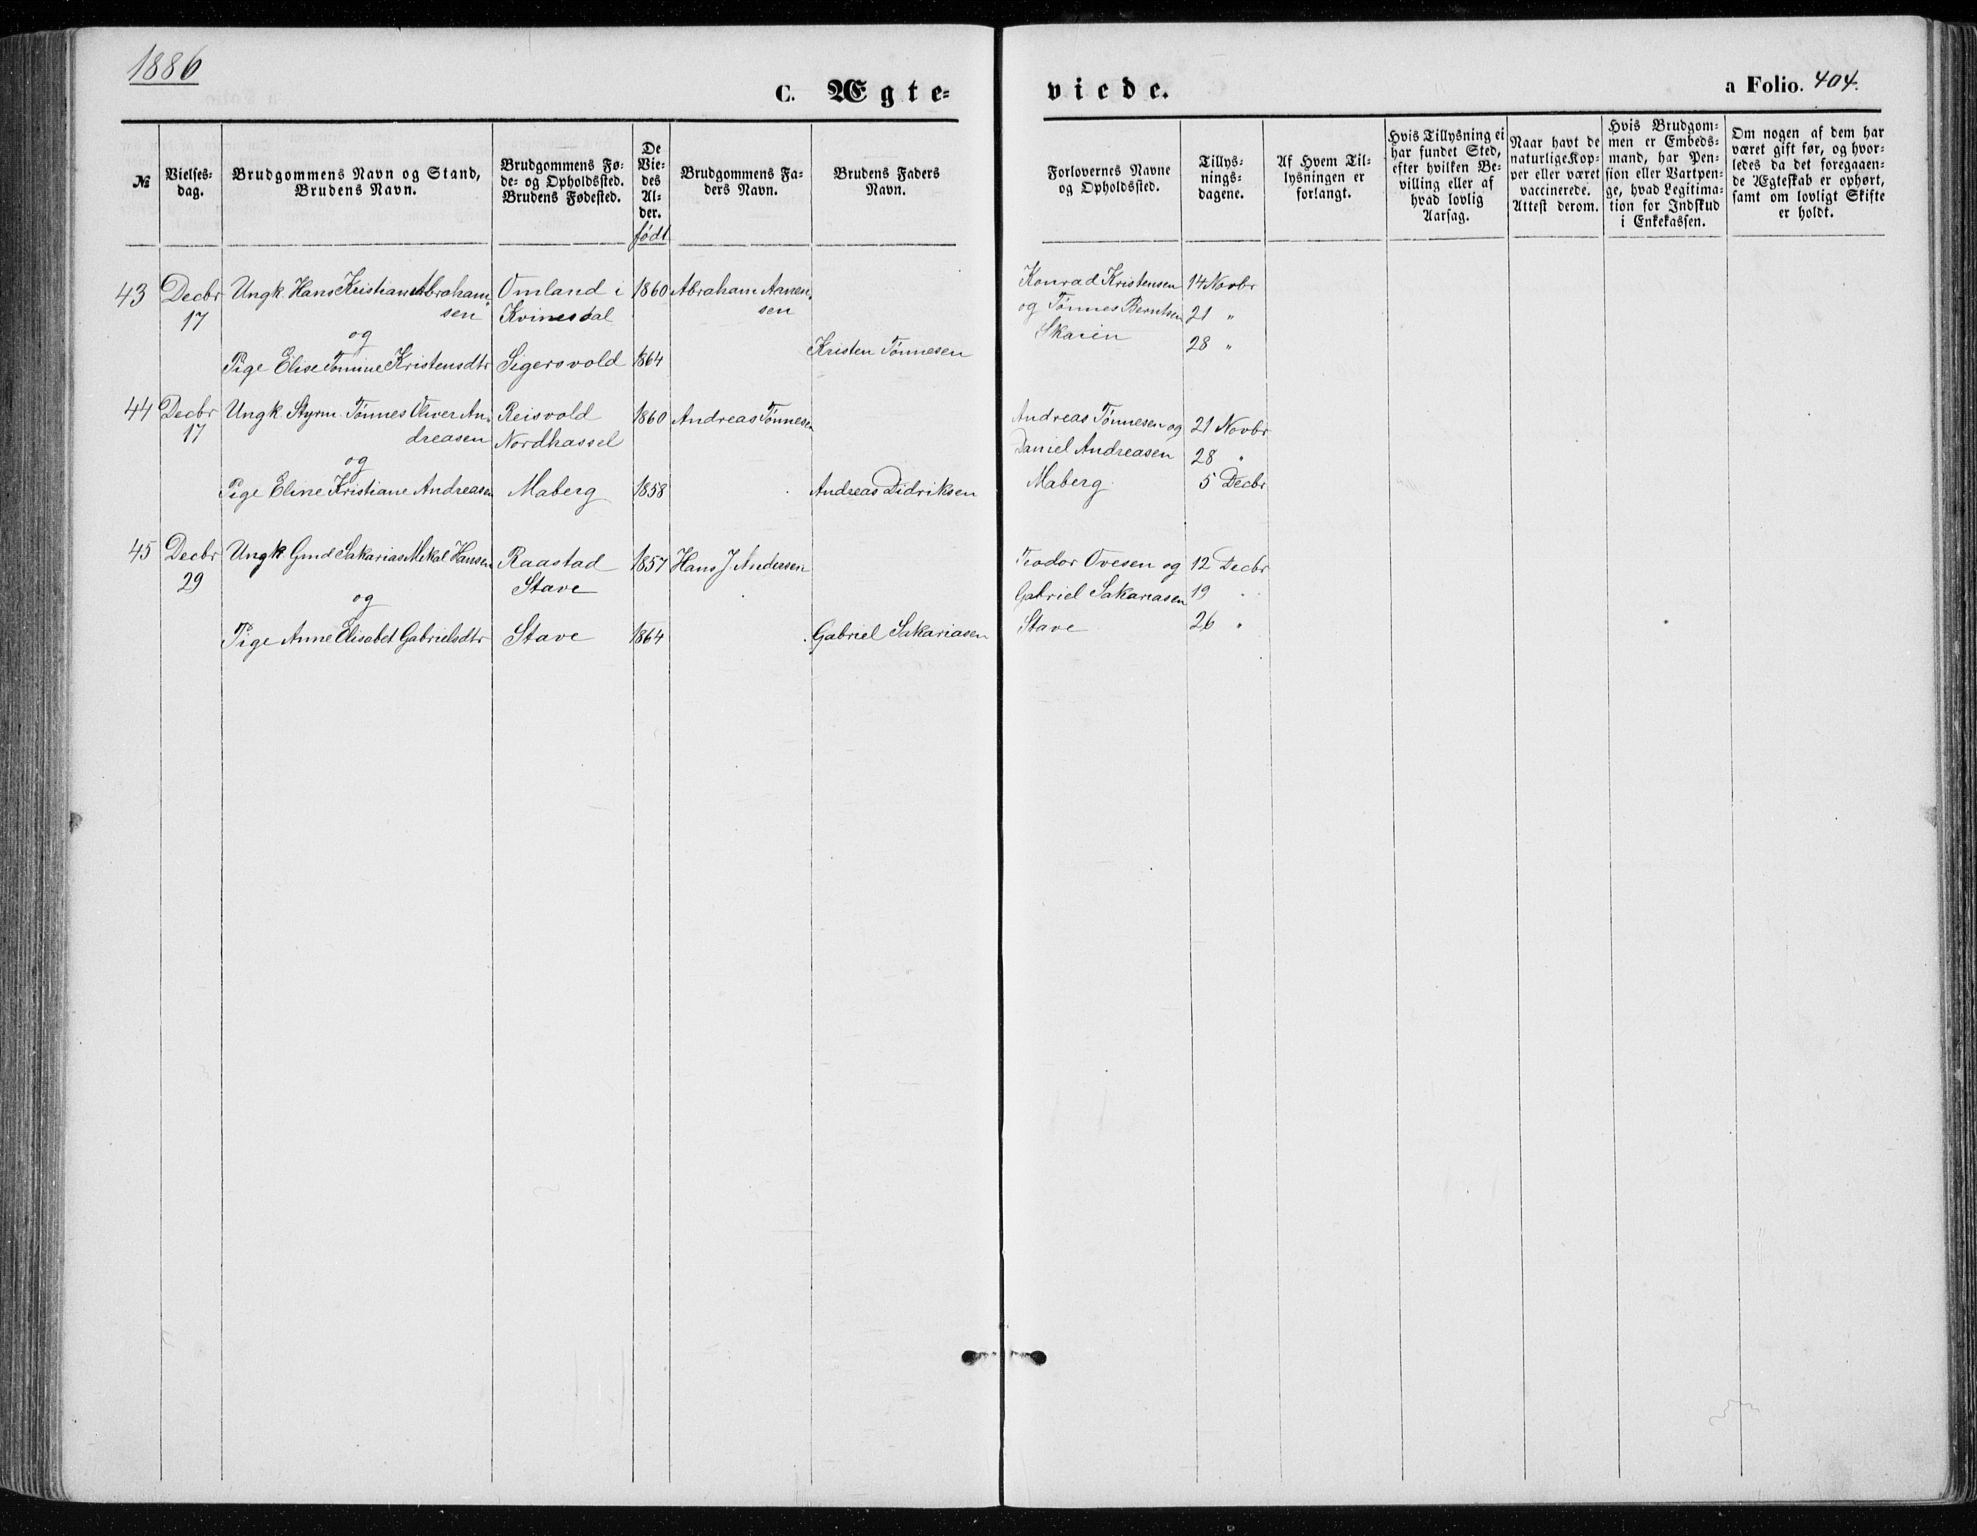 1886
C. Ægte-
viede.
a Folio. 404.
№
Vielses-
dag.
Brudgommens Navn og Stand,
Brudens Navn.
Brudgommens Fø-
de- og Opholdssted.
Brudens Fødested.
De
Vie-
des
Al-
der.
født
Brudgommens Fa-
ders Navn.
Brudens Faders
Navn.
Forlovernes Navne
og Opholdssted.
Tillys-
nings-
dagene.
Af Hvem Til-
lysningen er
forlangt.
Hvis Tillysning ei
har fundet Sted,
efter hvilken Be-
villing eller af
hvad lovlig
Aarsag.
Naar havt de
naturlige Kop-
per eller været
vaccinerede.
Attest derom.
Hvis Brudgom-
men er Embeds-
mand, har Pen-
sion eller Vartpen-
ge, hvad Legitima-
tion for Indskud
i Enkekassen.
Om nogen af dem har
været gift før, og hvor-
ledes da det foregaaen-
de Ægteskab er ophørt,
samt om lovligt Skifte
er holdt.
43
Decbr
17
Ungk. Hans Kristian Abraham-
sen
og
Pige Elise Tomine Kristensdtr
Omland i
Kvinesdal
Sigersvold
1860
1864
Abraham Arnen-
sen
Kristen Tønnesen
Konrad Kristensen
og Tønnes Berntsen
Skarien
14 Novbr
21 "
28 "
44
Decbr
17
Ungk. Styrm. Tønnes Oliver An-
dreasen
og
Pige Eline Kristiane Andreasen
Reisvold
Nordhassel
Maberg
1860
1858
Andreas Tønnesen
Andreas Didriksen
Andreas Tønnesen og
Daniel Andreasen
Maberg.
21 Novbr
28 "
5 Decbr
45
Decbr
29
Ungk. Gmd Sakarias Mikal Hansen
og
Pige Anne Elisabet Gabrielsdtr
Raastad
Stave
Stave
1857
1864
Hans J Andersen
Gabriel Sakariasen
Teodor Ovesen og
Gabriel Sakariasen
Stave
12 Decbr
19 "
26 "